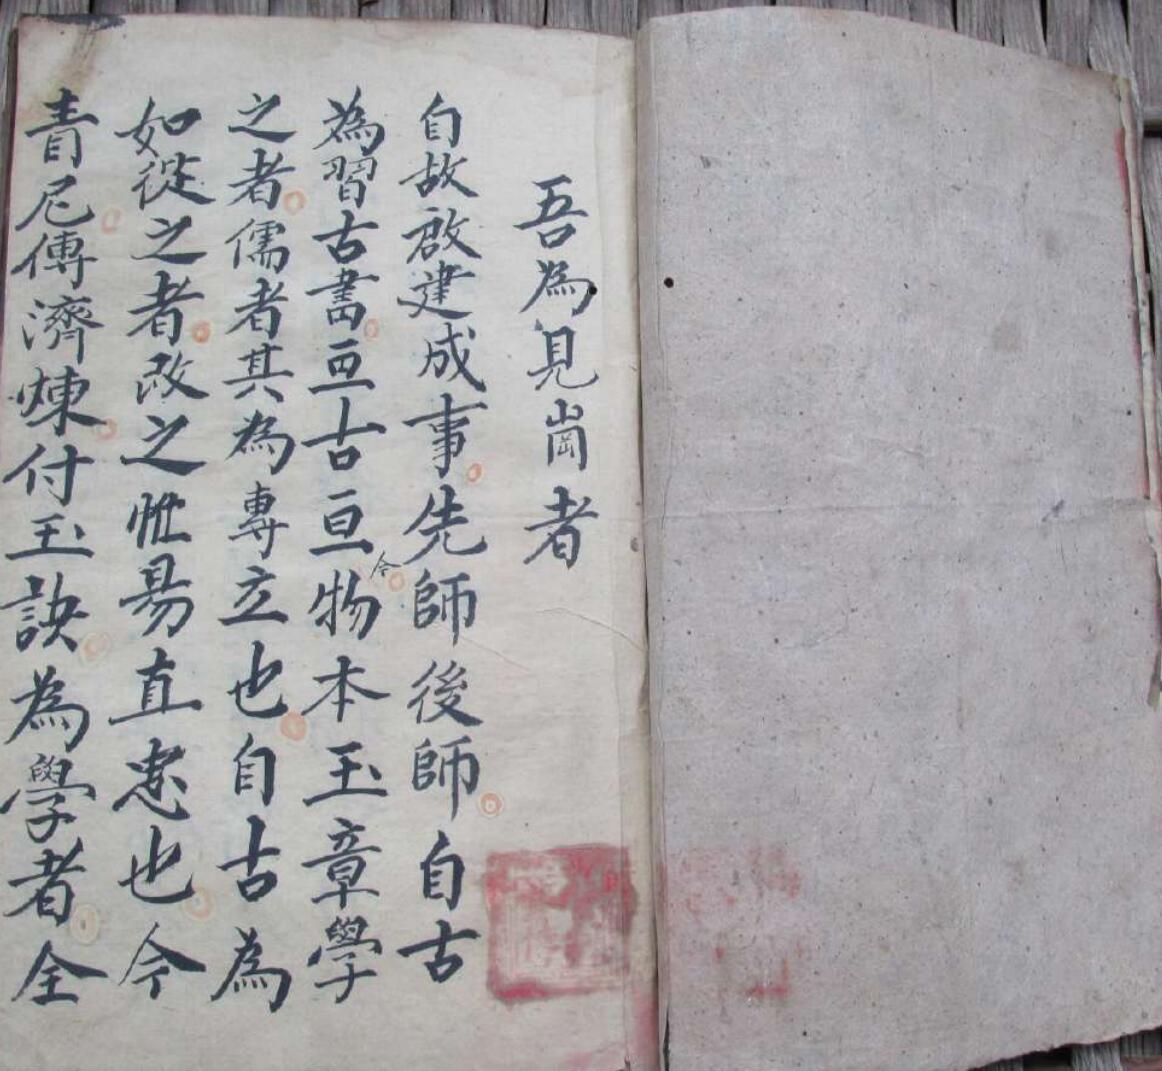 吾為見崗者
自故啟建成事先師後師自古
為習古書亘古亘今物本玉章學
之者儒者其為專立也自古為
如從之者改之惟易直惠也今
青尼傳濟煉付玉訣為學者全